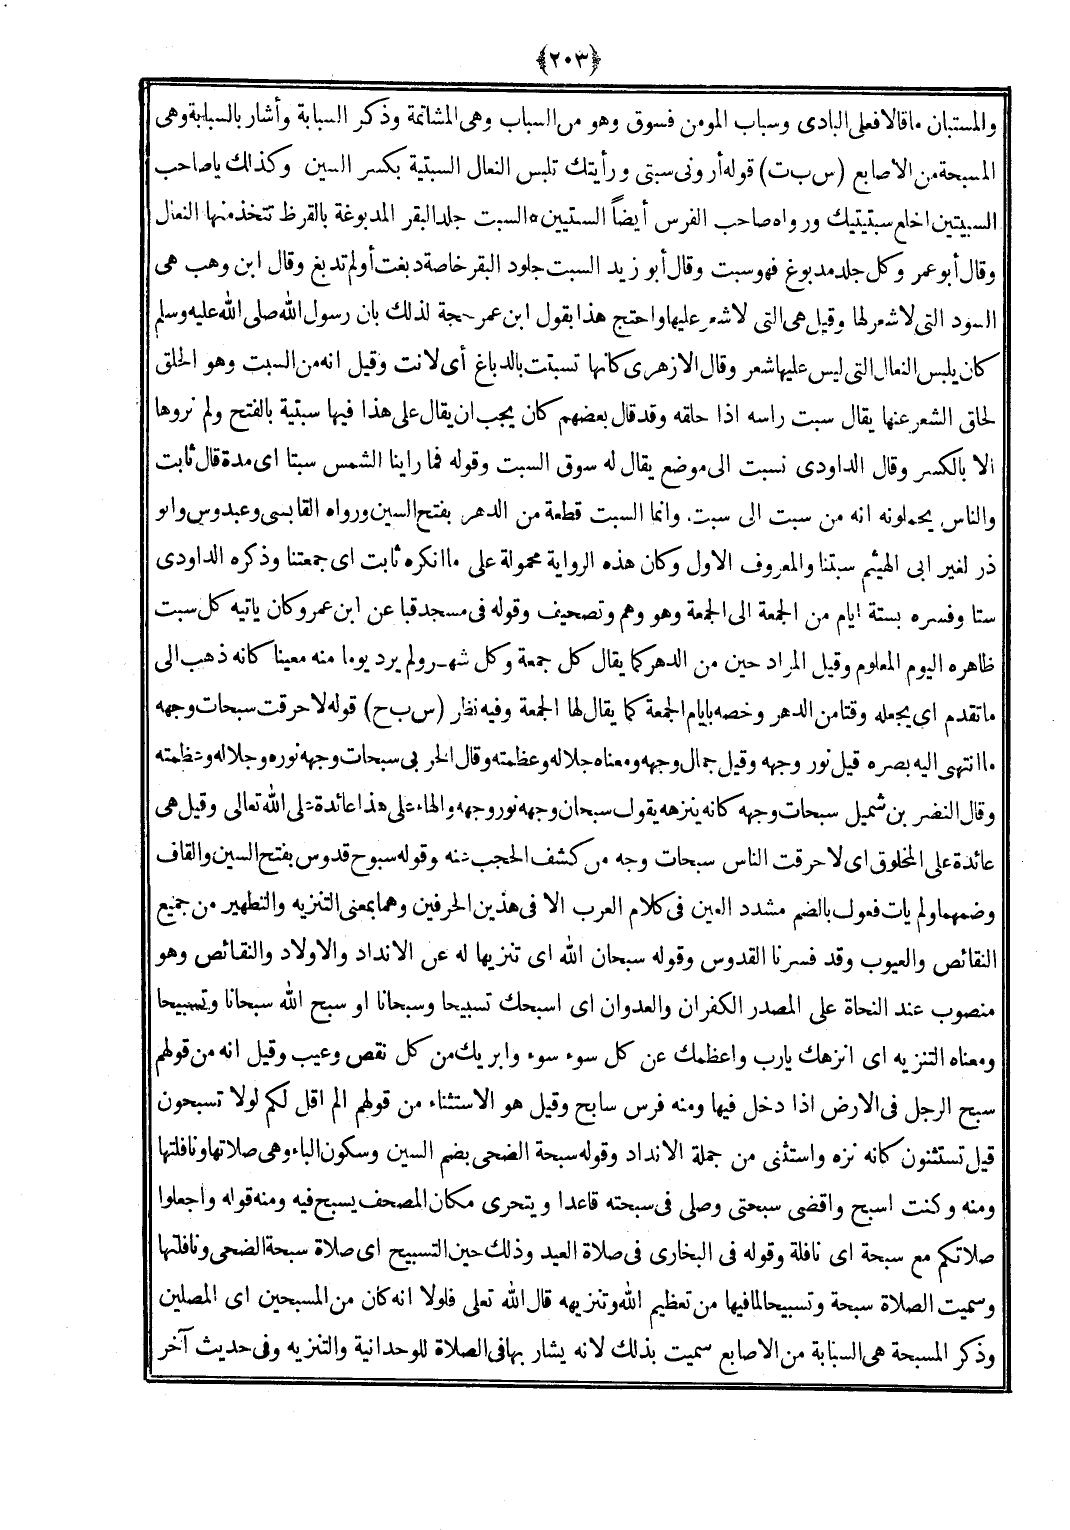 ﴿٢٠٣﴾
والمستبان ماقالافعلى البادى وسباب المومن فسوق وهو من السباب وهى المشاتمة وذكر السبابة وأشار بالسبابة وهى
المسبحة من الاصابع (س ب ت) قوله أرونى سبتى و رأيتك تلبس النعال السبتية بكسر السين وكذلك ياصاحب
السبتيين اخلع سبتيتيك ورواه صاحب الفرس أيضاً الستيين ه السبت جلد البقر المدبوغة بالقرظ تتخذ منها النعال
وقال أبو عمر وكل جلد مدبوغ فهو سبت وقال أبو زيد السبت جلود البقر خاصة دبغت أولم تدبغ وقال ابن وهب هى
السود التى لا شعر لها وقيل هى التى لا شعر عليها واحتج هذا بقول ابن عمر حجة لذلك بان رسول الله صلى الله عليه وسلم
كان يلبس النعال التى ليس عليها شعر وقال الازهرى كانها تسبتت بالدباغ أى لانت وقيل انه من السبت وهو الحلق
لحلق الشعر عنها يقال سبت راسه اذا حلقه وقد قال بعضهم كان يجب ان يقال على هذا فيها سبتية بالفتح ولم نروها
الا بالكسر وقال الداودى نسبت الى موضع يقال له سوق السبت وقوله فما راينا الشمس سبتا اى مدة قال ثابت
والناس يحملونه انه من سبت الى سبت. وانما السبت قطعة من الدهر بفتح السين ورواه القابسى وعبدوس وابو
ذر لغير ابى الهيثم سبتنا والمعروف الاول وكان هذه الرواية محمولة على ما انكره ثابت اى جمعتنا وذكره الداودى
ستا وفسره بستة ايام من الجمعة الى الجمعة وهو وهم وتصحيف وقوله فى مسجد قبا عن ابن عمر وكان ياتيه كل سبت
ظاهره اليوم المعلوم وقيل المراد حين من الدهر كما يقال كل جمعة وكل شهر ولم يرد يوما منه معينا كانه ذهب الى
ماتقدم اى يجعله وقتا من الدهر وخصه بايام الجمعة كما يقال لها الجمعة وفيه نظر (س ب ح) قوله لاحرقت سبحات وجهه
ما انتهى اليه بصره قيل نور وجهه وقيل جمال وجهه ومعناه جلاله وعظمته وقال الحربى سبحات وجهه نوره وجلاله وعظمته
وقال النضر بن شميل سبحات وجهه كانه ينزهه يقول سبحان وجهه نور وجهه والهاء على هذا عائدة على الله تعالى وقيل هى
عائدة على المخلوق اى لاحرقت الناس سبحات وجه من كشف الحجب عنه وقوله سبوح قدوس بفتح السين والقاف
وضمهما ولم يات فعول بالضم مشدد العين فى كلام العرب الا فى هذين الحرفين وهما بمعنى التنزيه والتطهير من جميع
النقائص والعيوب وقد فسرنا القدوس وقوله سبحان الله اى تنزيها له عن الانداد والاولاد والنقائص وهو
منصوب عند النحاة على المصدر الكفران والعدوان اى اسبحك تسبيحا وسبحانا او سبح الله سبحانا وتسبيحا
ومعناه التنزيه اى انزهك يارب واعظمك عن كل سوء سوء وابريك من كل نقص وعيب وقيل انه من قولهم
سبح الرجل فى الارض اذا دخل فيها ومنه فرس سابح وقيل هو الاستثناء من قولهم الم اقل لكم لولا تسبحون
قيل تستثنون كانه نزه واستثنى من جملة الانداد وقوله سبحة الضحى بضم السين وسكون الباء وهى صلاتها ونافلتها
ومنه وكنت اسبح واقضى سبحتى وصلى فى سبحته قاعدا ويتحرى مكان المصحف يسبح فيه ومنه قوله واجعلوا
صلاتكم مع سبحة اى نافلة وقوله فى البخارى فى صلاة العيد وذلك حين التسبيح اى صلاة سبحة الضحى ونافلتها
وسميت الصلاة سبحة وتسبيحا لما فيها من تعظيم الله وتنزيهه قال الله تعلى فلولا انه كان من المسبحين اى المصلين
وذكر المسبحة هى السبابة من الاصابع سميت بذلك لانه يشار بها فى الصلاة للوحدانية والتنزيه وفى حديث آخر